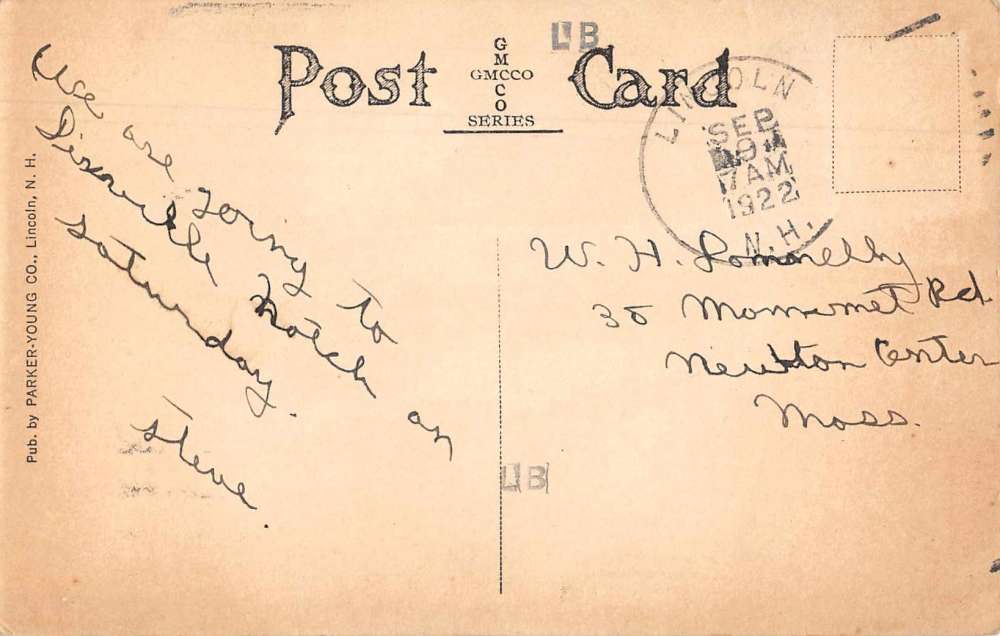 LB
Post Card
G
M
GMCCO
C
O
SERIES
LINCOLN
SEP
9
7AM
1922
N.H.
We are going to
Dixville Notch on
Saturday.
Steve.
W. H. Connelly
35 Monomet Rd
Newton Center
Mass.
LB
Pub. by PARKER-YOUNG CO., Lincoln, N. H.